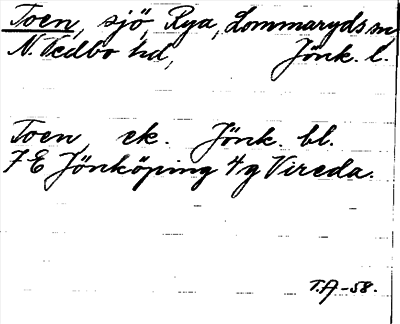 Toen, sjö, Rya, Lommaryds sn,
N. Vedbo hd, Jönk. l.
Toen, ek. Jönk. bl.
7 E Jönköping 4 g Vireda.
T.A-58.